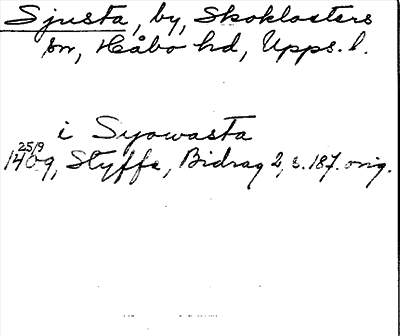 Sjusta, by, Skoklosters
sn, Håbo hd, Upps. l.
i Syowasta
25/9
1409, Styffe, Bidrag 2, s. 187. orig.